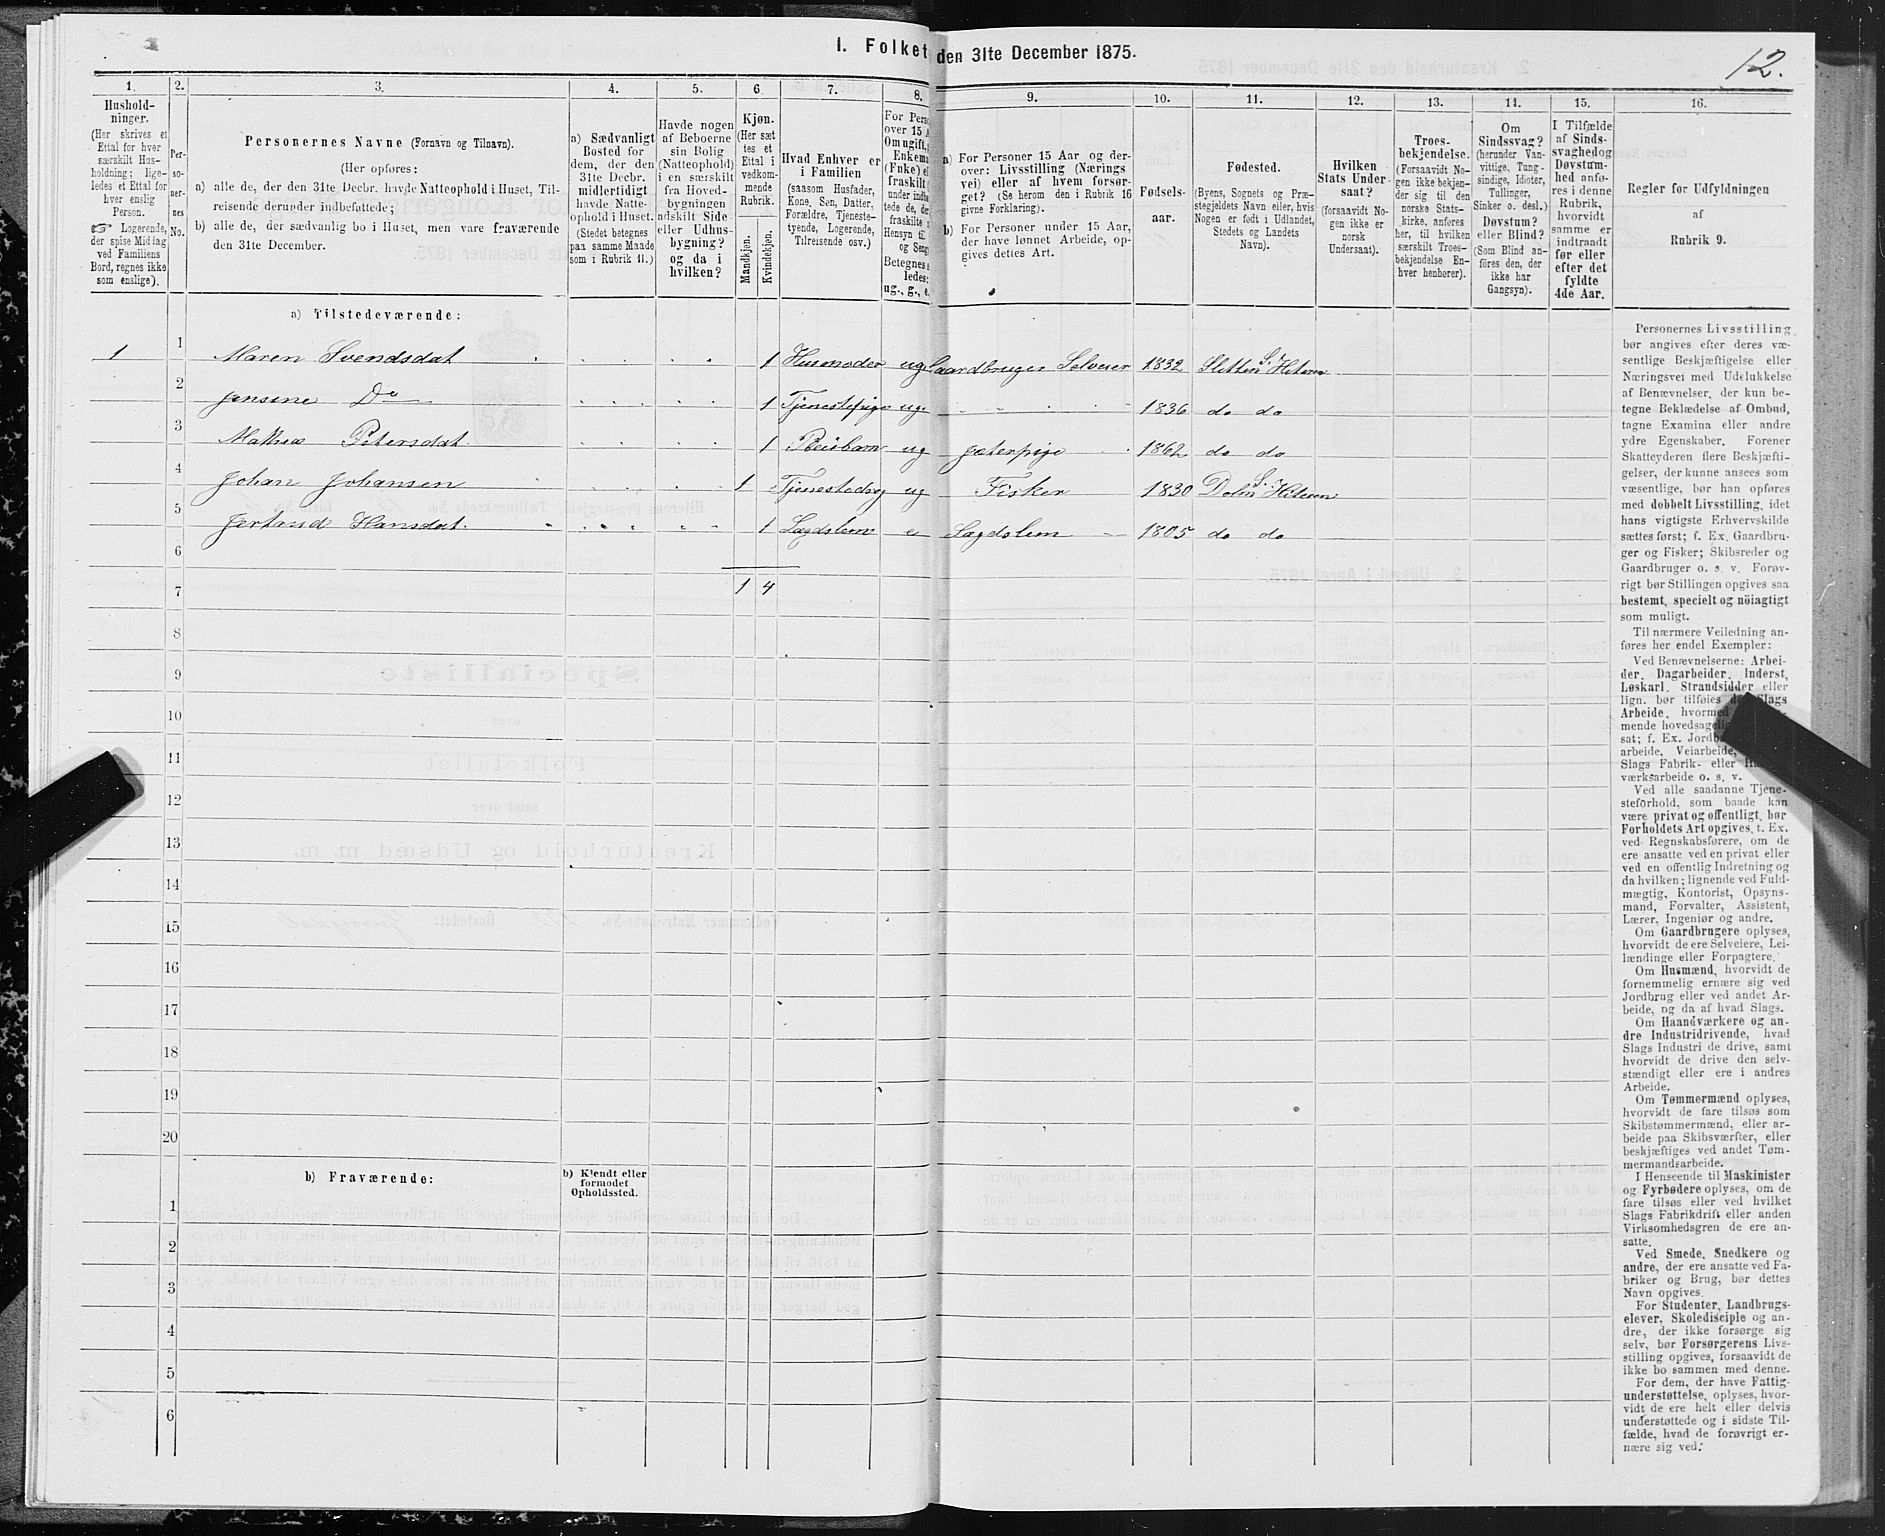 I. Folket den 31te December 1875.
12.
1. 2. 3. 4. 5. 6. 7. 8. 9. 10. 11. 12. 13. 14. 15. 16.
Hushold-
ninger.
(Her skrives et
Ettal for hver
særskilt Hus-
holdning; lige-
ledes et Ettal for
hver enslig
Person.
☞ Logerende,
der spise Middag
ved Familiens
Bord, regnes ikke
som enslige).
Per-
so-
ner-
nes
No.
Personernes Navne (Fornavn og Tilnavn).
(Her opføres:
a) alle de, der den 31te Decbr. havde Natteophold i Huset, Til-
reisende derunder indbefattede;
b) alle de, der sædvanlig bo i Huset, men vare fraværende
den 31te December.
a) Sædvanligt
Bosted for
dem, der den
31te Decbr.
midlertidigt
havde Natte-
ophold i Huset.
(Stedet betegnes
paa samme Maade
som i Rubrik 11.)
Havde nogen
af Beboerne
sin Bolig
(Natteophold)
i en særskilt
fra Hoved-
bygningen
adskilt Side-
eller Udhus-
bygning?
og da i
hvilken?
Kjøn.
(Her sæt-
tes et
Ettal i
vedkom-
mende
Rubrik.
Mandkjøn.
Kvindekjøn.
Hvad Enhver er
i Familien
(saasom Husfader,
Kone, Søn, Datter,
Forældre, Tjeneste-
tyende, Logerende,
Tilreisende osv.)
For Perso
over 15 A
Om ugift,
Enkema
(Enke) el
fraskilt
under indbe
tede de, de
fraskilte
Hensyn til
og Seng
Betegnes s
ledes:
ug., g., e.
a) For Personer 15 Aar og der-
over: Livsstilling (Nærings
vei) eller af hvem forsør-
get? (Se herom den i Rubrik 16
givne Forklaring).
b) For Personer under 15 Aar,
der have lønnet Arbeide, op-
gives dettes Art.
Fødsels-
aar.
Fødested.
(Byens, Sognets og Præ-
stegjeldets Navn eller, hvis
Nogen er født i Udlandet,
Stedets og Landets
Navn).
Hvilken
Stats Under
saat?
(forsaavidt No-
gen ikke er
norsk
Undersaat).
Troes-
bekjendelse.
(Forsaavidt No-
gen ikke bekjen-
der sig til den
norske Stats-
kirke, anføres
her, til hvilken
særskilt Troes-
bekjendelse En-
hver henhører).
Om
Sindssvag?
(herunder Van-
vittige, Tung-
sindige, Idioter,
Tullinger,
Sinker o. desl.)
Døvstum?
eller Blind?
(Som Blind an-
føres den, der
ikke har
Gangsyn).
I Tilfælde
af Sinds-
svaghed og
Døvstum-
hed anfø-
res i denne
Rubrik,
hvorvidt
samme er
indtraadt
før eller
efter det
fyldte
4de Aar.
Regler for Udfyldningen
af
Rubrik 9.
a) Tilstedeværende:
1 1 Maren Svendsdat 1 Husmoder ug Gaardbruger Selveier 1832 Sletten S. Hiteren
2 Jensine Do 1 Tjenestepige ug 1836 do do
3 Mathea Petersdat 1 Pleiebarn ug gjæterpige 1862 do do
4 Johan Johansen 1 Tjenestedrg ug Fisker 1830 Dolm S. Hiteren
5 Gjertrud Hansdat. 1 Lægdslem e Lægdslem 1805 do do
6
7 1 4
8
9
10
11
12
13
14
15
16
17
18
19
20
b) Fraværende:
b) Kjendt eller
formodet
Opholdssted.
1
2
3
4
5
6
Personernes Livsstilling
bør angives efter deres væ-
sentlige Beskjæftigelse eller
Næringsvei med Udelukkelse
af Benævnelser, der kun be-
tegne Beklædelse af Ombud,
tagne Examina eller andre
ydre Egenskaber. Forener
Skatteyderen flere Beskjæfti-
gelser, der kunne ansees som
væsentlige, bør han opføres
med dobbelt Livsstilling, idet
hans vigtigste Erhvervskilde
sættes først; f. Ex. Gaardbru-
ger og Fisker; Skibsreder og
Gaardbruger o. s. v. Forøv-
rigt bør Stillingen opgives saa
bestemt, specielt og nöiagtigt
som muligt.
Til nærmere Veiledning an-
føres her endel Exempler:
Ved Benævnelserne: Arbei-
der, Dagarbeider, Inderst,
Løskarl, Strandsidder eller
lign. bør tilføies det Slags
Arbeide, hvormed
mende hovedsagelig
sat; f. Ex. Jordb
arbeide, Veiarbeide,
Slags Fabrik- eller
værksarbeide o. s. v.
Ved alle saadanne Tjene-
steforhold, som baade kan
være privat og offentligt, bør
Forholdets Art opgives, t. Ex.
ved Regnskabsførere, om de
ere ansatte ved en privat eller
ved en offentlig Indretning og
da hvilken; lignende ved Fuld-
mægtig, Kontorist, Opsyns-
mand, Forvalter, Assistent,
Lærer, Ingeniør og andre.
Om Gaardbrugere oplyses,
hvorvidt de ere Selveiere, Lei-
lændinge eller Forpagtere.
Om Husmænd, hvorvidt de
fornemmelig ernære sig ved
Jordbrug eller ved andet Ar-
beide, og da af hvad Slags.
Om Haandværkere og an-
dre Industridrivende, hvad
Slags Industri de drive, samt
hvorvidt de drive den selv-
stændigt eller ere i andres
Arbeide.
Om Tømmermænd oplyses,
hvorvidt de fare tilsøs som
Skibstømmermænd, eller ar-
beide paa Skibsværfter, eller
beskjæftiges ved andet Tøm-
mermandsarbeide.
I Henseende til Maskinister
og Fyrbødere oplyses, om de
fare tilsøs eller ved hvilket
Slags Fabrikdrift eller anden
Virksomhedsgren de ere an-
satte.
Ved Smede, Snedkere og
andre, der ere ansatte ved Fa-
briker og Brug, bør dettes
Navn opgives.
For Studenter, Landbrugs-
elever, Skoledisciple og an-
dre, der ikke forsørge sig
selv, bør Forsørgerens Livs-
stilling opgives, forsaavidt de
ikke bo sammen med denne.
For dem, der have Fattig-
understøttelse, oplyses, hvor-
vidt de ere helt eller delvis
understøttede og i sidste Til-
fælde, hvad de forøvrigt er-
nære sig ved.